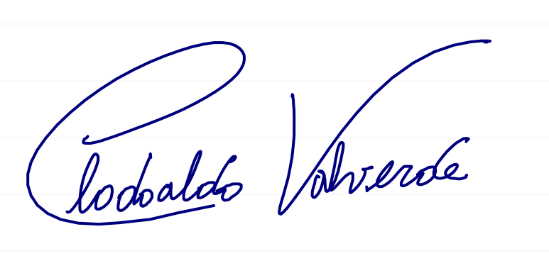 Clodoaldo Valverde